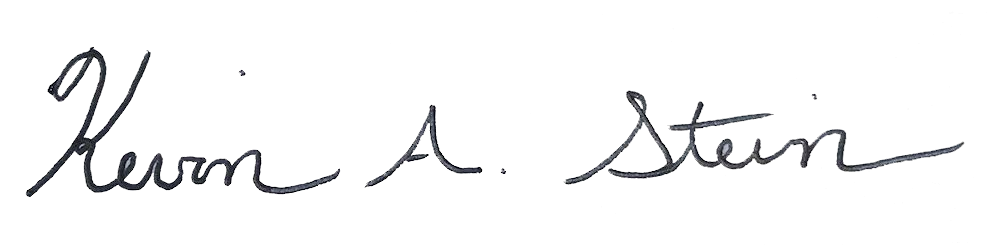 Kevin A. Stein